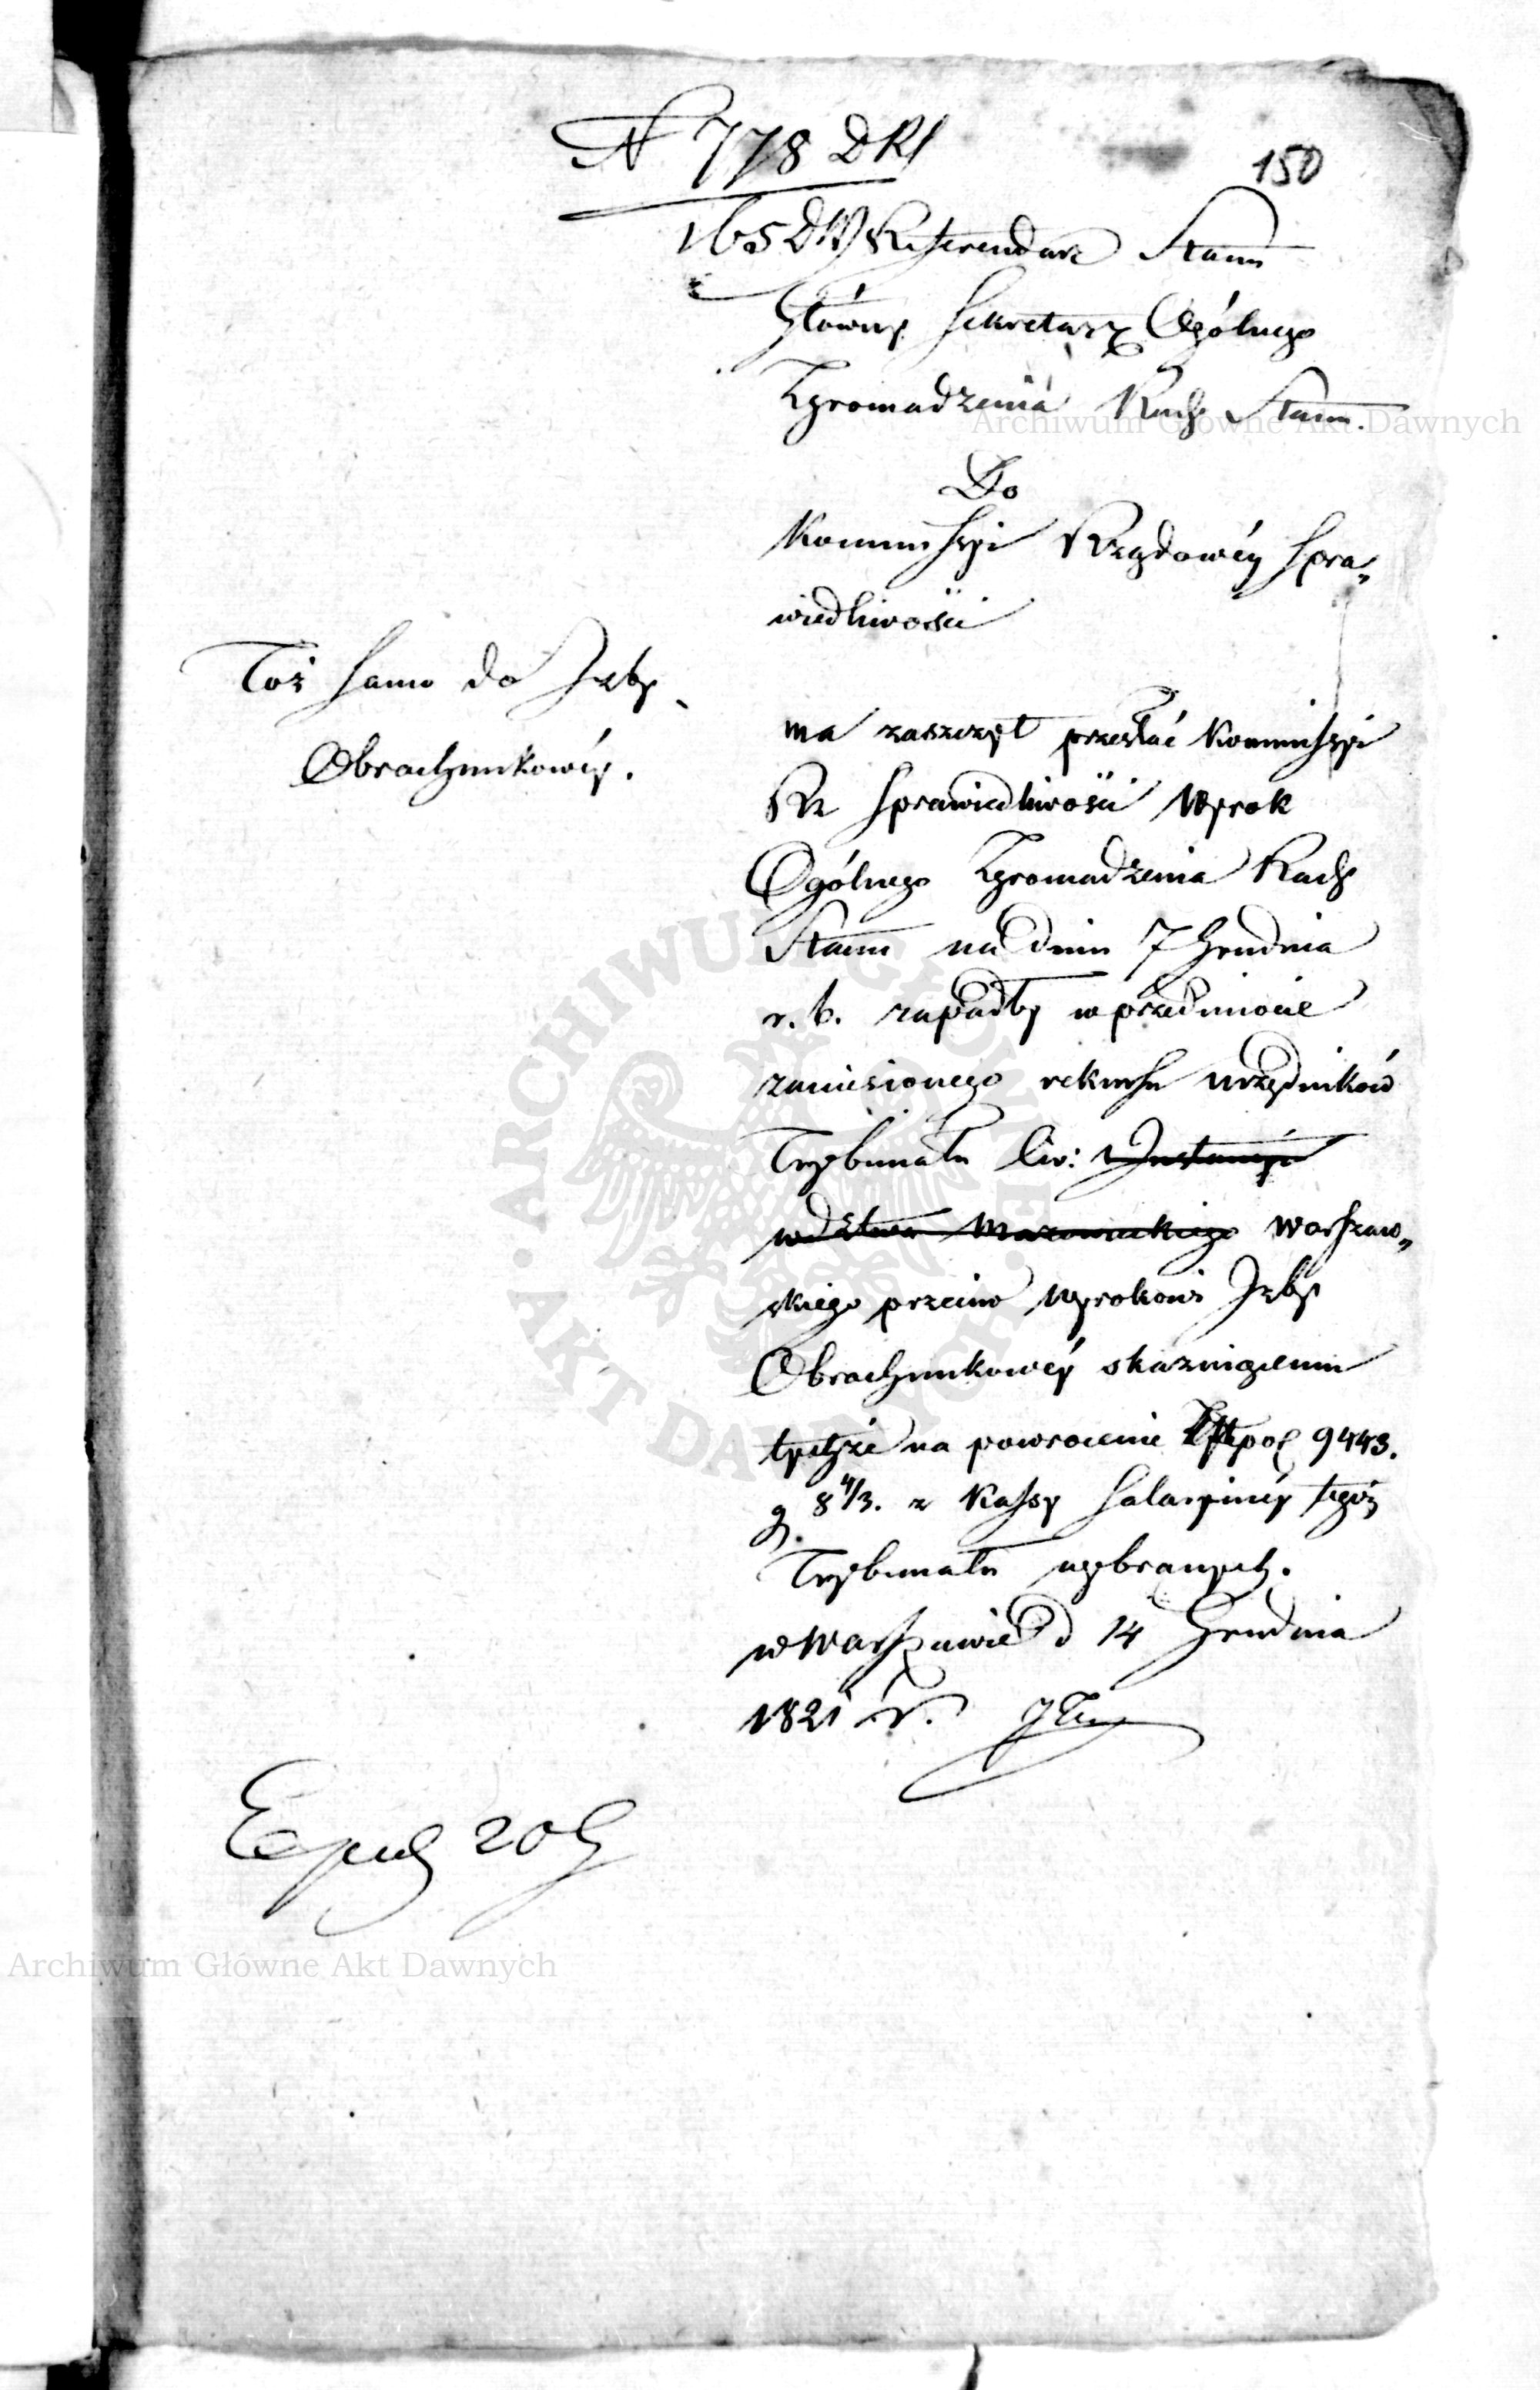 N 778 DRS
150
165 DW Referendarz Stanu
Główny Sekretarz Ogólnego
Zgromadzenia Rady Stanu.
Do
Kommissyi Rządowéy Spra„
wiedliwości
Toż samo do Izby
Obrachunkowéy.
ma zaszczyt przesłać Kommissyi
Rz Sprawiedliwości Wyrok
Ogólnego Zgromadzenia Rady
Stanu na dniu 7 Grudnia
r. b. zapadły w przedmiocie
zaniesionego rekursu urzędników
Trybunału Cw: Instancyi
wdztwa Mazowieckiego Warszaw„
skiego przeciw wyrokowi Izby
Obrachunkowéy skazuiącemu
tychże na powrócenie Złtpol 9443.
g 8 1/3. z Kassy Salaryinéy tegoż
Trybunału wybranych.
w Warszawie d 14 Grudnia
1821 r.
Exped 20 G
Archiwum Główne Akt Dawnych
ARCHIWUM GŁÓWNE AKT DAWNYCH
Archiwum Główne Akt Dawnych